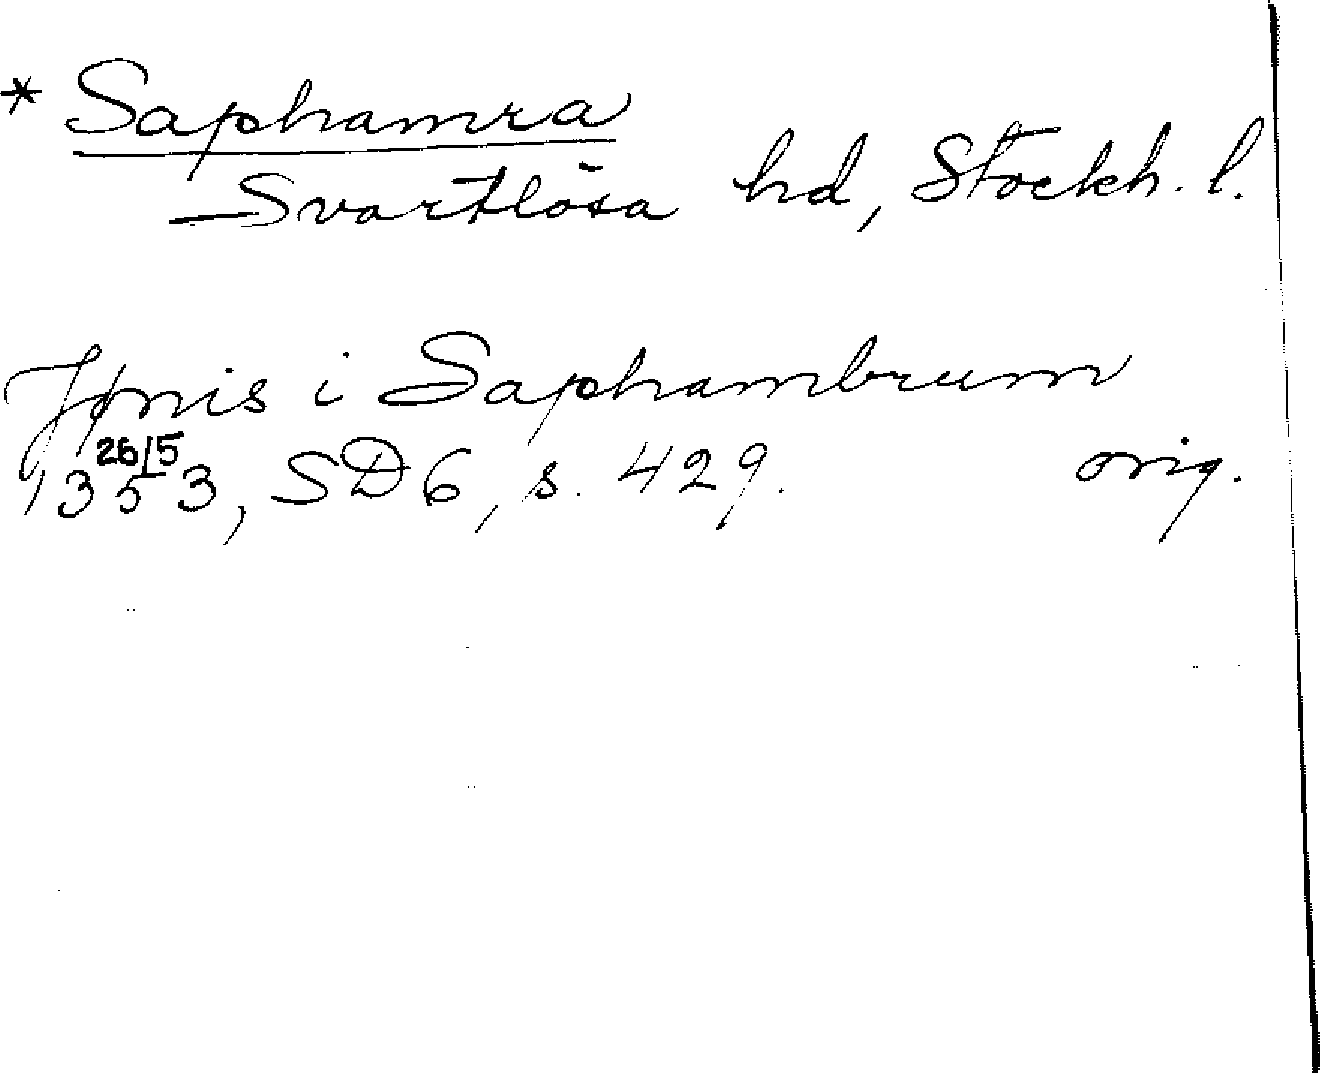 * Saphamra
Svartlösa hd, Stockh. l.
Jønis i Saphambrum
26/5
1353, SD 6, s. 429. orig.